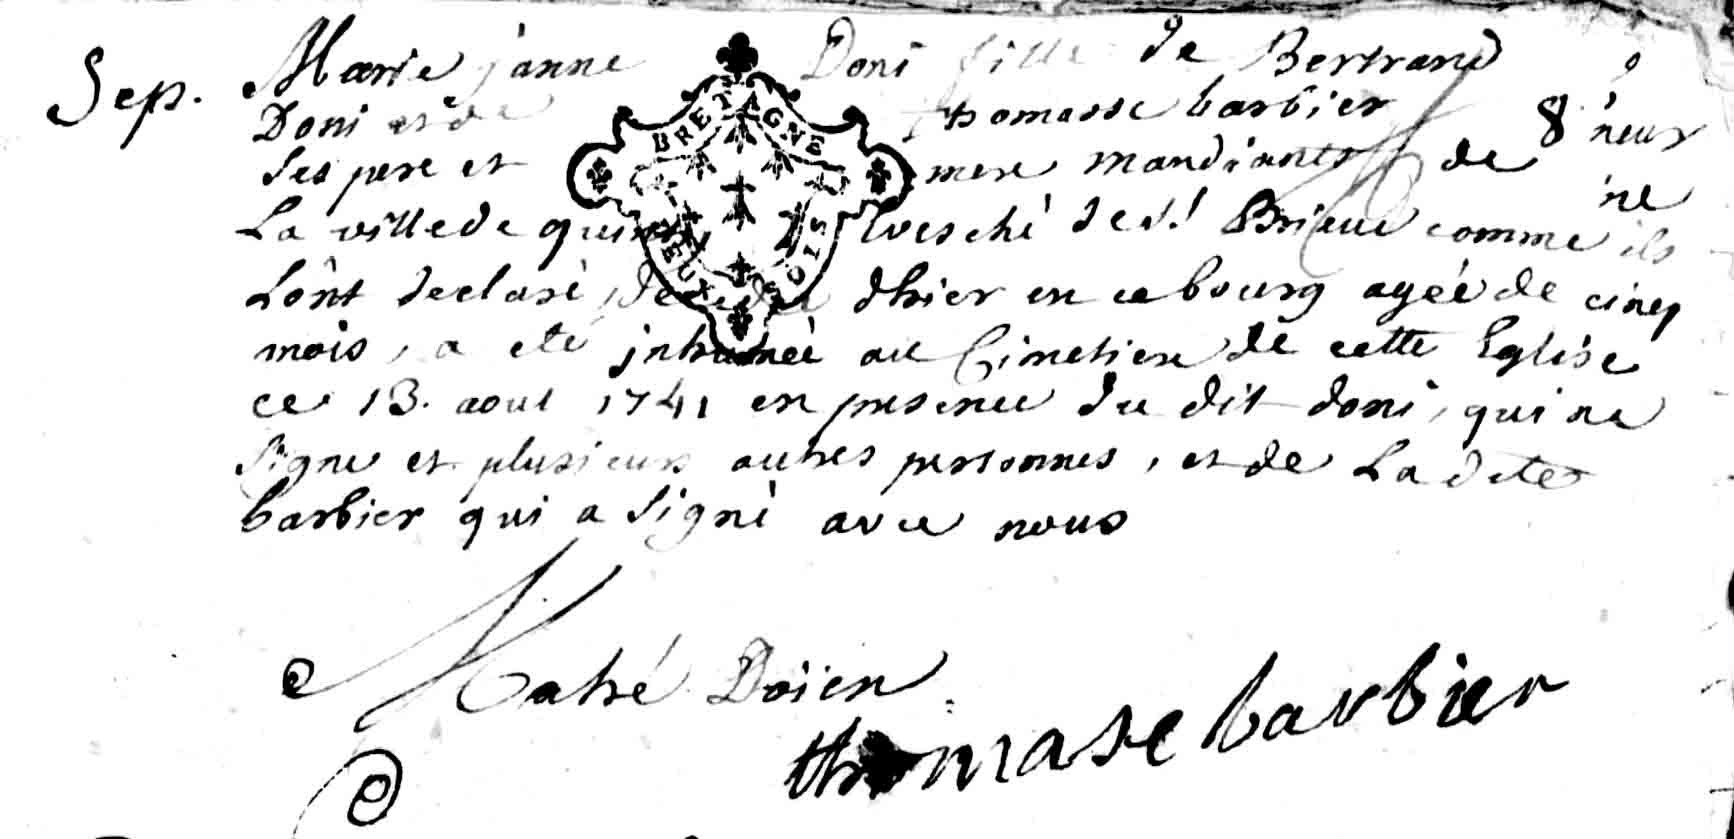 Sep. Marie janne Doni fille de Bertrand
Doni et de thomasse barbier
ses pere et mere mandiants de
La ville de quintin Evesché de st Brieuc comme ils
Lônt declaré, decedée d'hier en ce bourg agée de cinq
mois, a eté inhumée au Cimetiere de cette Eglise
ce 13. aout 1741 en presence du dit doni, qui ne
signe et plusieurs autres personnes, et de La dite
barbier qui a signé avec nous
BRETAGNE
DEUX SOLS
Doien
thomase barbier